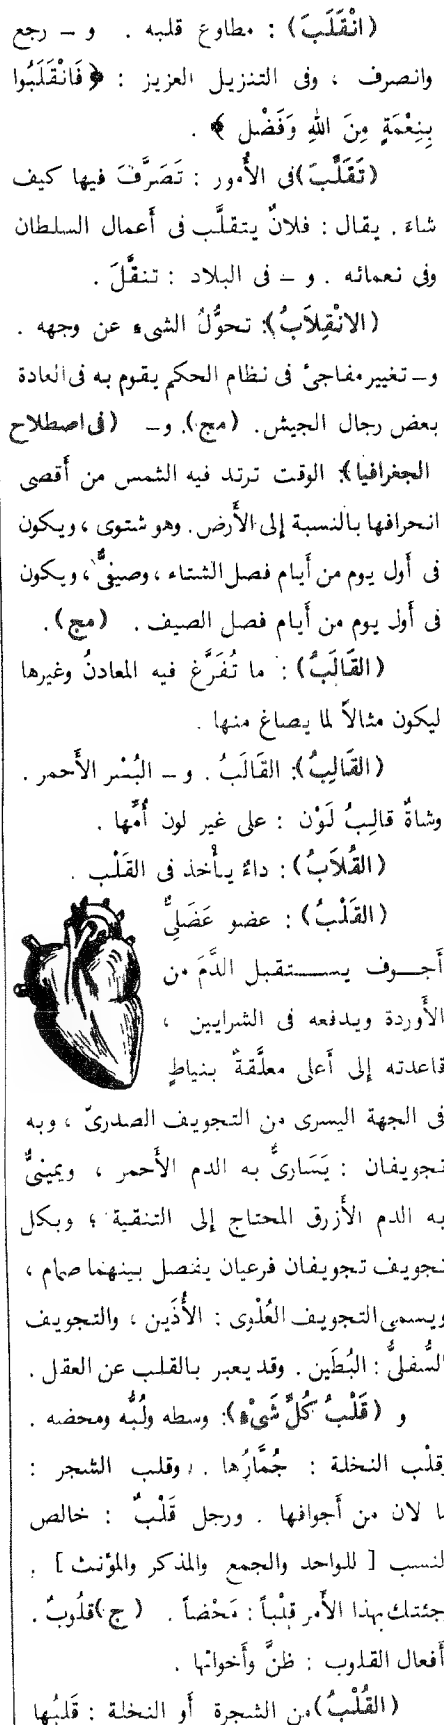 (انْقَلَبَ) : مطاوع قلبه . و – رجع
وانصرف ، وفى التنزيل العزيز : ﴿ فَانْقَلَبُوا
بِنِعْمَةٍ مِنَ اللهِ وَفَضْلٍ ﴾ .
(تَقَلَّبَ) فى الأُمور : تَصَرَّفَ فيها كيف
شاءَ . يقال : فلانٌ يتقلَّب فى أَعمال السلطان
وفى نعمائه . و – فى البلاد : تنقَّلَ .
(الانْقِلاَبُ) : تحوُّلُ الشىءِ عن وجهه .
و – تغيير مفاجئ فى نظام الحكم يقوم به فى العادة
بعض رجال الجيش . (مج) . و – (فى اصطلاح
الجغرافيا) : الوقت ترتد فيه الشمس من أَقصى
انحرافها بالنسبة إلى الأَرض . وهو شتوى ، ويكون
فى أَول يوم من أَيام فصل الشتاء ، وصيفىٌّ ، ويكون
فى أَول يوم من أَيام فصل الصيف . (مج) .
(القَالَبُ) : ما تُفَرَّغ فيه المعادنُ وغيرها
ليكون مثالاً لما يصاغ منها .
(القَالِبُ) : القَالَبُ . و – البُسْر الأَحمر .
وشاةٌ قالِبُ لَوْن : على غير لون أُمِّها .
(القُلاَبُ) : داءٌ يأْخذ فى القَلْب .
(القَلْبُ) : عضو عَضَلِىٌّ
أَجــوف يســتقبل الدَّمَ من
الأَوردة ويدفعه فى الشرايين ،
قاعدته إلى أَعلى معلَّقةٌ بنياطٍ
فى الجهة اليسرى من التجويف الصدرىّ ، وبه
تجويفان : يَسَارىٌّ به الدم الأَحمر ، ويمينىٌّ
به الدم الأَزرق المحتاج إلى التنقية ؛ وبكل
تجويف تجويفان فرعيان يفصل بينهما صمام ،
ويسمى التجويف العُلْوى : الأُذَين ، والتجويف
السُّفلىُّ : البُطَين . وقد يعبر بالقلب عن العقل .
و (قَلْبُ كُلِّ شَىْءٍ) : وسطه ولُبُّه ومحضه .
وقلْب النخلة : جُمَّارُها . وقلب الشجر :
ما لان من أَجوافها . ورجل قَلْبٌ : خالص
النسب [ للواحد والجمع والمذكر والمؤنث ] .
وجئتك بهذا الأَمر قلْباً : مَحْضاً . (ج) قلُوبٌ .
وأَفعال القلوب : ظنَّ وأَخواتها .
(القُلْبُ) من الشجرة أَو النخلة : قَلبُها